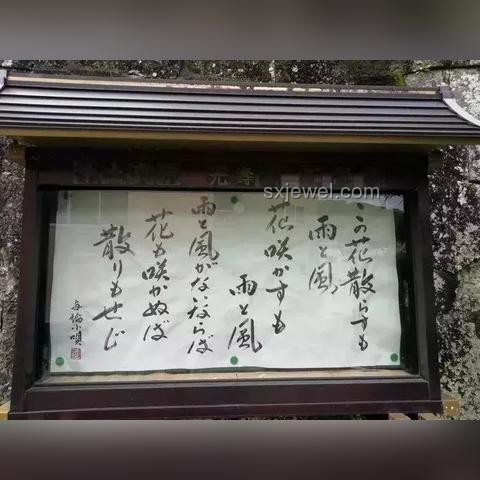 この花散らすも
雨と風
花咲かすも
雨と風
雨と風がないならば
花も咲かぬば
散りもせじ
与論小唄
sxjewel.com